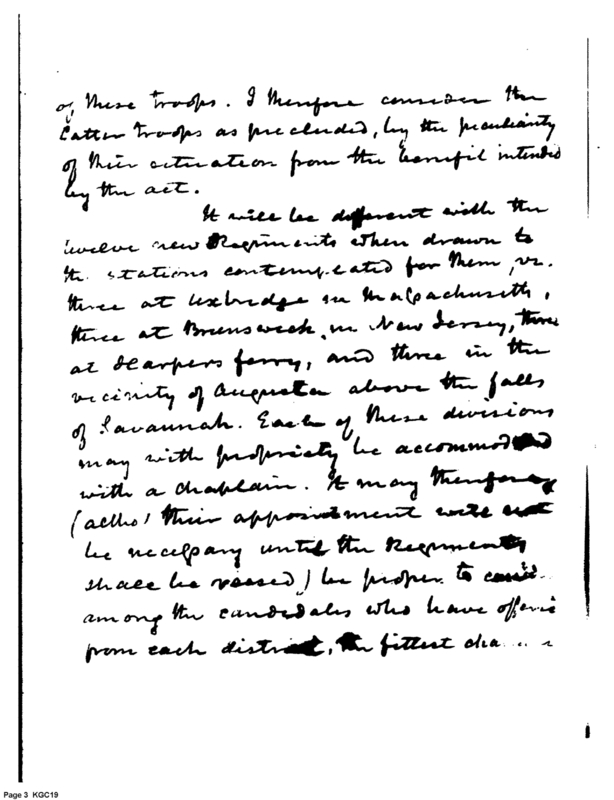 of these troops. I therefore consider the
latter troops as precluded, by the peculiarity
of their situation from the benefit intended
by the act.
It will be different with the
twelve new Regiments when drawn to
the stations contemplated for them, vz.
three at Uxbridge in Massachusetts,
three at Brunswick, in New Jersey, three
at Harpers ferry, and three in the
vicinity of Augusta above the falls
of Savannah. Each of these divisions
may with propriety be accommodated
with a chaplain. It may therefore
(altho' their appointment will not
be necessary until the Regiments
shall be raised) be proper to
among the candidates who have offered
from each district, the fittest
Page 3 KGC19